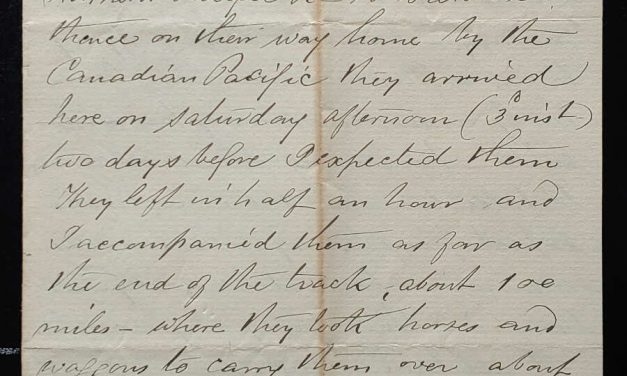 thence on their way home by the
Canadian Pacific they arrived
here on Saturday afternoon (3 inst)
two days before I expected them
They left in half an hour and
I accompanied them as far as
the end of the track, about 100
miles - where they took horses and
waggons to carry them over about